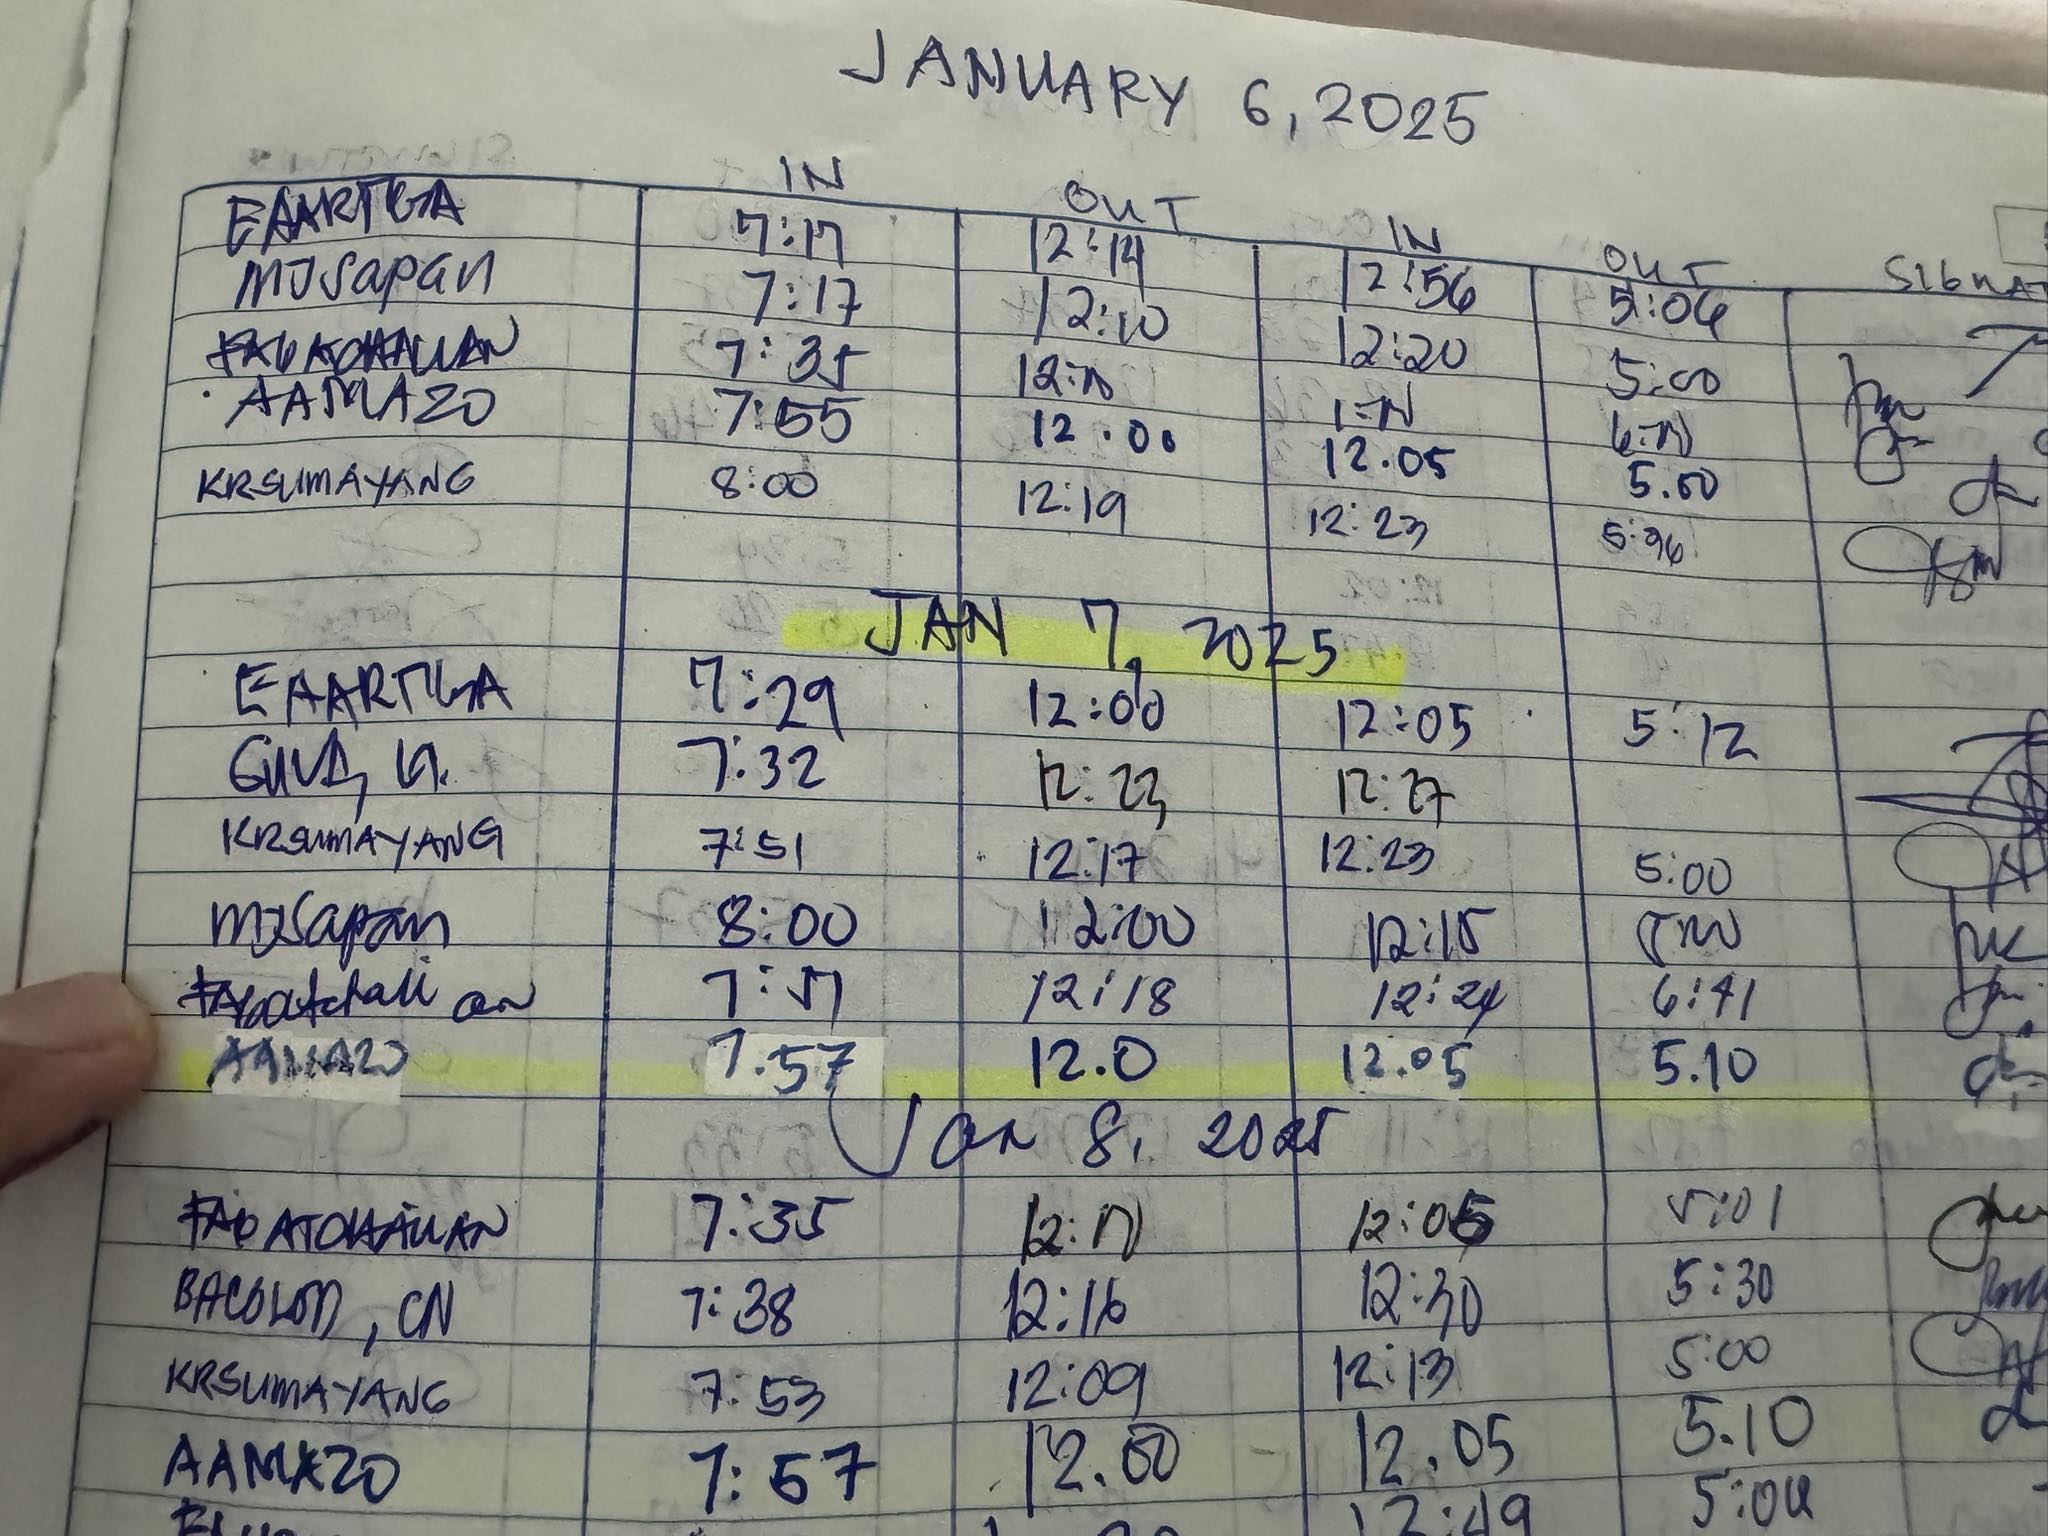 JANUARY 6, 2025
IN OUT IN OUT
EAARTIGA 7:17 12:14 12:56 5:06
MJSapan 7:17 12:10 12:20 5:00
7:35
AAMAZO 7:55 12.00 12.05 5.00
KRSUMAYANG 8:00 12:19 12:23
JAN 7, 2025
EAARTIGA 7:29 12:00 12:05 5:12
7:32 12:23 12:27
KRSUMAYANG 7:51 12:17 12:23 5:00
MJSapan 8:00 12:00 12:15
12:18 12:24 6:41
AAMAZO 7.57 12.0 12.05 5.10
Jan 8, 2025
7:35 5:01
BACOLOD, CN 7:38 12:16 12:30 5:30
KRSUMAYANG 7:53 12:09 12:13 5:00
AAMAZO 7:57 12.00 12.05 5.10
12:49